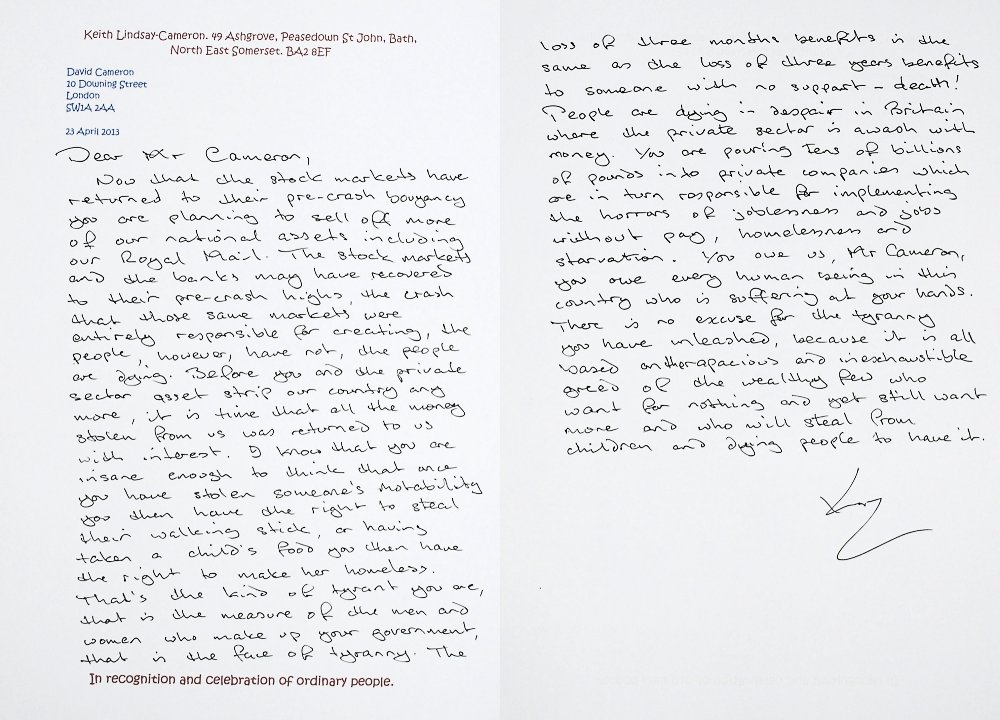 Keith Lindsay-Cameron. 49 Ashgrove, Peasedown St John, Bath,
North East Somerset. BA2 8EF
David Cameron
10 Downing Street
London
SW1A 2AA
23 April 2013
Dear Mr Cameron,
Now that the stock markets have
returned to their pre-crash bouyancy
you are planning to sell off more
of our national assets including
our Royal Mail. The stock markets
and the banks may have recovered
to their pre-crash highs, the crash
that those same markets were
entirely responsible for creating, the
people, however, have not, the people
are dying. Before you and the private
sector asset strip our country any
more, it is time that all the money
stolen from us was returned to us
with interest. I know that you are
insane enough to think that once
you have stolen someone's motability
you then have the right to steal
their walking stick, or having
taken a child's food you then have
the right to make her homeless.
That's the kind of tyrant you are,
that is the measure of the men and
women who make up your government,
that is the face of tyranny. The
In recognition and celebration of ordinary people.
loss of three months benefits is the
same as the loss of three years benefits
to someone with no support - death!
People are dying in despair in Britain
where the private sector is awash with
money. You are pouring tens of billions
of pounds into private companies which
are in turn responsible for implementing
the horrors of joblessness and jobs
without pay, homelessness and
starvation. You owe us, Mr Cameron,
you owe every human being in this
country who is suffering at your hands.
There is no excuse for the tyranny
you have unleashed, because it is all
based on the rapacious and inexhaustible
greed of the wealthy few who
want for nothing and yet still want
more and who will steal from
children and dying people to have it.